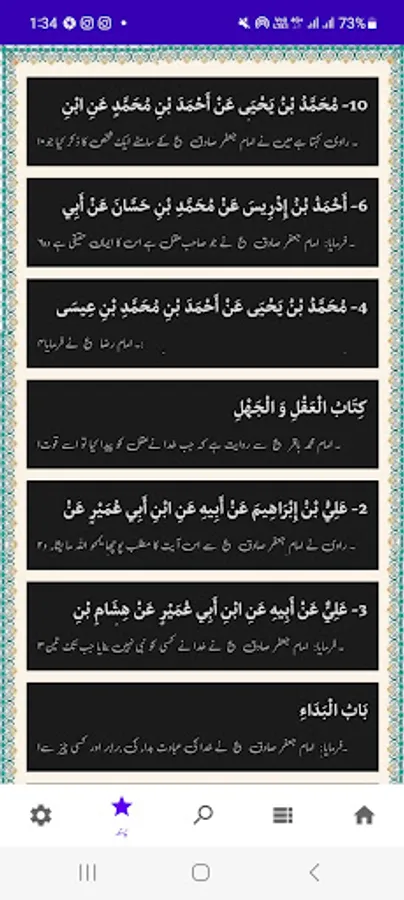 1:34
73%
10- مُحَمَّدُ بْنُ يَحْيَى عَنْ أَحْمَدَ بْنِ مُحَمَّدٍ عَنِ ابْنِ
۔ راوی کہتا ہے میں نے امام جعفر صادق کے سامنے ایک شخص کا ذکر کیا جو
6- أَحْمَدُ بْنُ إِدْرِيسَ عَنْ مُحَمَّدِ بْنِ حَسَّانَ عَنْ أَبِي
۔ فرمایا: امام جعفر صادق نے جو صاحب عقل ہے اس کا ایمان حقیقی ہے
4- مُحَمَّدُ بْنُ يَحْيَى عَنْ أَحْمَدَ بْنِ مُحَمَّدِ بْنِ عِيسَى
۔ امام رضا نے فرمایا
كِتَابُ الْعَقْلِ وَ الْجَهْلِ
۔ امام محمد باقر سے روایت ہے کہ جب خدا نے عقل کو پیدا کیا تو اسے قوت
2- عَلِيُّ بْنُ إِبْرَاهِيمَ عَنْ أَبِيهِ عَنِ ابْنِ أَبِي عُمَيْرٍ عَنْ
۔ راوی نے امام جعفر صادق سے اس آیت کا مطلب پوچھا یمحو اللہ ما یشاء
3- عَلِيٌّ عَنْ أَبِيهِ عَنِ ابْنِ أَبِي عُمَيْرٍ عَنْ هِشَامِ بْنِ
۔ فرمایا: امام جعفر صادق نے خدا نے کسی کو نبی نہیں بنایا جب تک تین
بَابُ الْبَدَاءِ
۔ فرمایا: امام جعفر صادق نے خدا کی عبادت بداء کی برابر اور کسی چیز سے